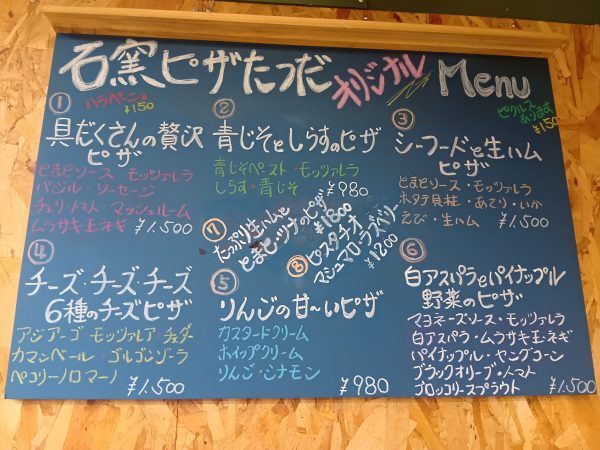 石窯ピザたつだ オリジナル Menu
ハラペーニョ
¥150
ピクルス
あります
¥150
①
具だくさんの贅沢
ピザ
とまとソース・モッツァレラ
バジル・ソーセージ
チェリートマト・マッシュルーム
ムラサキ玉ネギ ¥1.500
②
青じそとしらすのピザ
青じそペースト・モッツァレラ
しらす・青じそ ¥980
③
シーフードと生ハム
ピザ
とまとソース・モッツァレラ
ホタテ貝柱・あさり・いか
えび・生ハム ¥1.500
④
チーズ・チーズ・チーズ
6種のチーズピザ
アジアーゴ モッツァレア・チェダー
カマンベール・ゴルゴンゾーラ
ペコリーノロマーノ ¥1.500
⑤
りんごの甘〜いピザ
カスタードクリーム
ホイップクリーム
りんご・シナモン ¥980
⑥
白アスパラとパイナップル
野菜のピザ
マヨネーズソース・モッツァレラ
白アスパラ・ムラサキ玉ネギ
パイナップル・ヤングコーン
ブラックオリーブ・トマト
ブロッコリースプラウト ¥1.500
⑦
たっぷり生ハムと
とまと・ツナのピザ
¥1800
⑧
ピスタチオ
マシュマロ・ラズベリー
¥1200